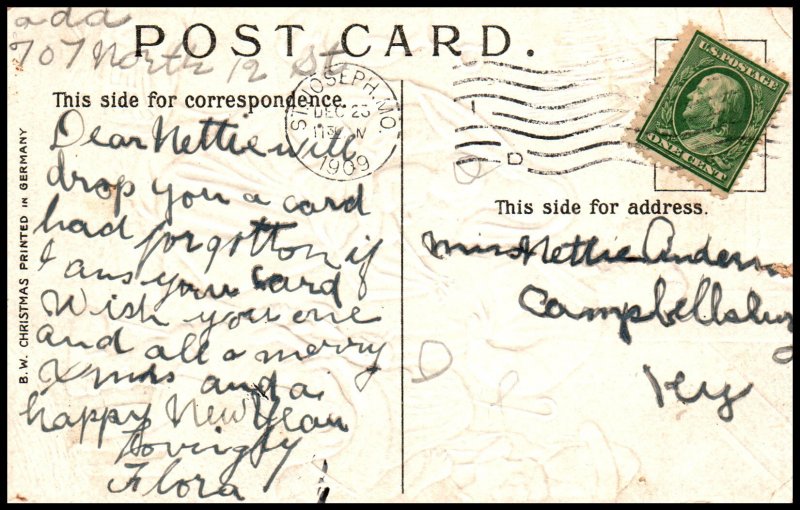 add
707 North 12 St
POST CARD.
This side for correspondence.
ST. JOSEPH, MO.
DEC 23
1130
1909
U.S. POSTAGE
ONE CENT
B. W. CHRISTMAS PRINTED IN GERMANY
Dear Nettie will
drop you a card
had forgotton if
I ans your card
Wish you one
and all a merry
Xmas and a
happy New Year
Lovingly
Flora
This side for address.
Miss Nettie Anderson
Campbellsburg
Ky